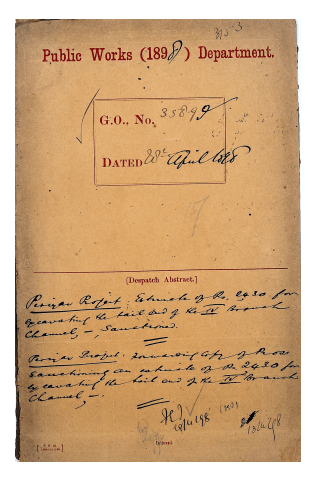 Public Works (1898) Department.
G.O., No. 358
DATED 28th April 1898
[Despatch Abstract.]
Periyar Project: Estimate of Rs. 2430 for
excavating the tail end of the IV Branch
Channel, —, Sanctioned.
Periyar Project: Forwarding Copy of Procs.
Sanctioning an estimate of Rs 2430 for
excavating the tail end of the IV Branch
Channel, —.